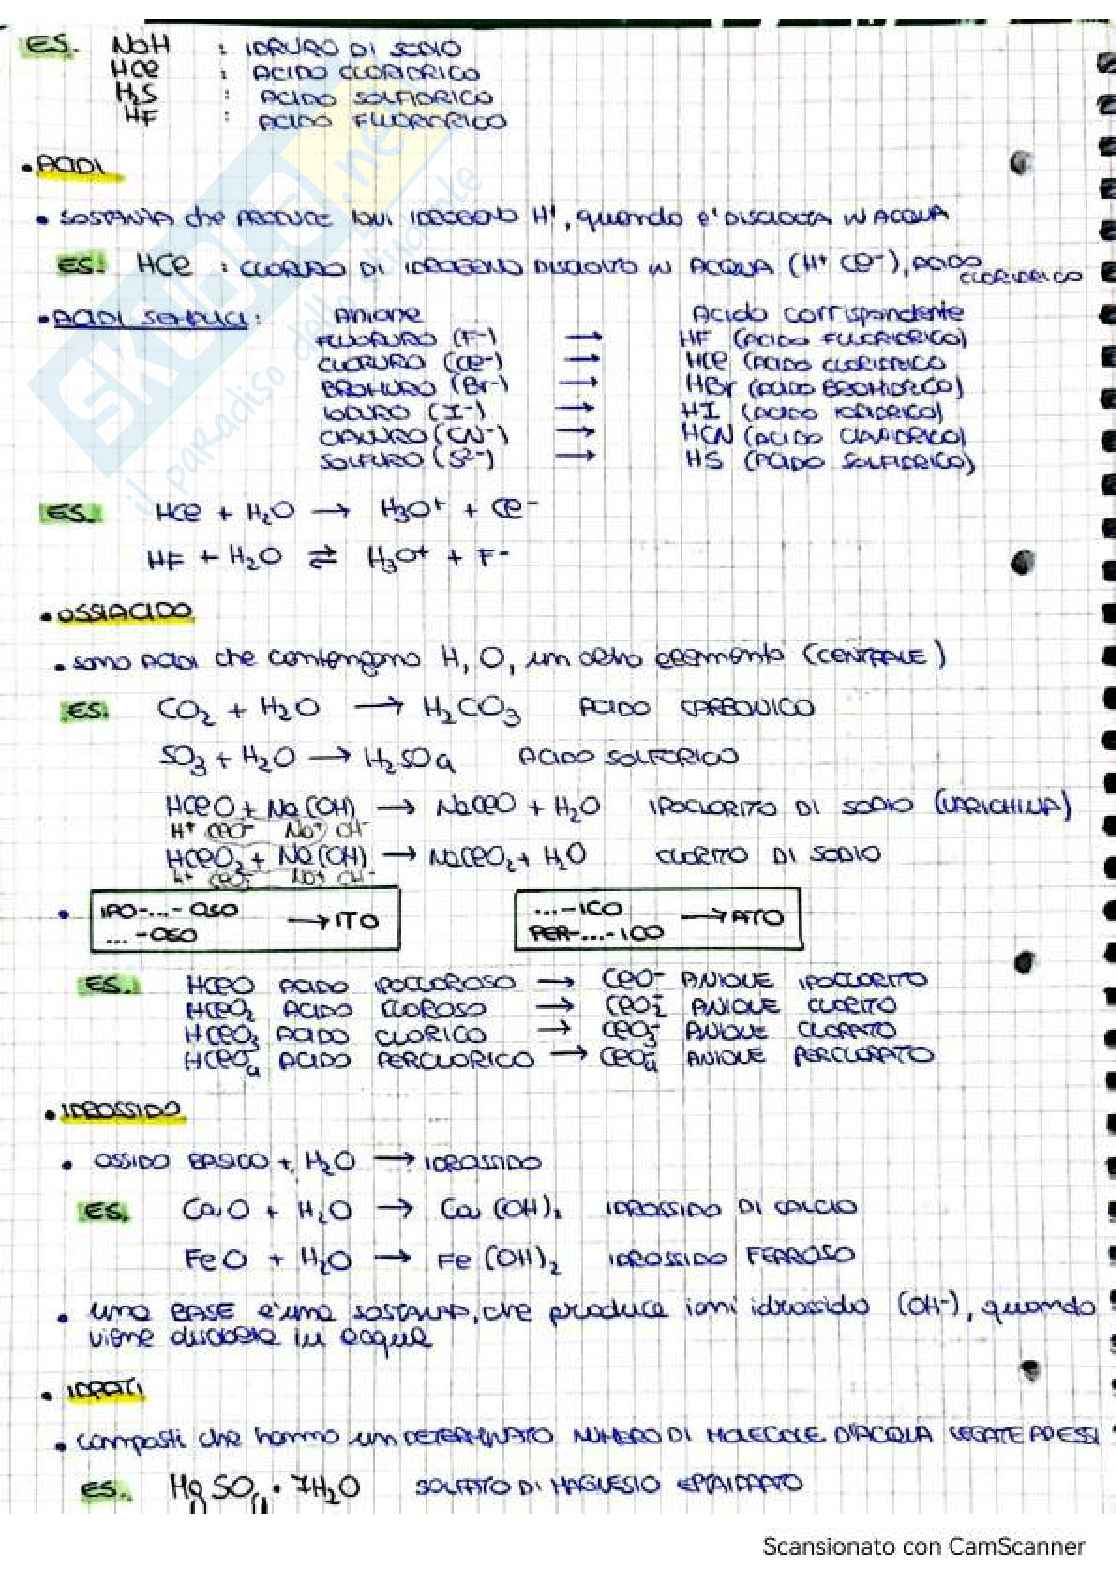 ES. NaH : IDRURO DI SODIO
HCl : ACIDO CLORIDRICO
H₂S : ACIDO SOLFIDRICO
HF : ACIDO FLUORIDRICO
• ACIDI
• SOSTANZA che PRODUCE IONI IDROGENO H⁺, quando e' DISCIOLTA IN ACQUA
ES. HCl : CLORURO DI IDROGENO DISCIOLTO IN ACQUA (H⁺ Cl⁻), ACIDO CLORIDRICO
• ACIDI SEMPLICI: Anione Acido corrispondente
FLUORURO (F⁻) → HF (ACIDO FLUORIDRICO)
CLORURO (Cl⁻) → HCl (ACIDO CLORIDRICO
BROMURO (Br⁻) → HBr (ACIDO BROMIDRICO)
IODURO (I⁻) → HI (ACIDO IODIDRICO)
CIANURO (CN⁻) → HCN (ACIDO CIANIDRICO)
SOLFURO (S²⁻) → HS (ACIDO SOLFIDRICO)
ES. HCl + H₂O → H₃O⁺ + Cl⁻
HF + H₂O ⇄ H₃O⁺ + F⁻
• OSSIACIDO
• sono ACIDI che contengono H, O, un altro elemento (CENTRALE)
ES. CO₂ + H₂O → H₂CO₃ ACIDO CARBONICO
SO₃ + H₂O → H₂SO₄ ACIDO SOLFORICO
HClO + Na(OH) → NaClO + H₂O IPOCLORITO DI SODIO (VARICHINA)
H⁺ ClO⁻ Na⁺ OH⁻
HClO₂ + Na(OH) → NaClO₂ + H₂O CLORITO DI SODIO
H⁺ ClO₂⁻ Na⁺ OH⁻
• IPO-...-OSO → ITO ...-ICO → ATO
...-OSO PER-...-ICO
ES. HClO ACIDO IPOCLOROSO → ClO⁻ ANIONE IPOCLORITO
HClO₂ ACIDO CLOROSO → ClO₂⁻ ANIONE CLORITO
HClO₃ ACIDO CLORICO → ClO₃⁻ ANIONE CLORATO
HClO₄ ACIDO PERCLORICO → ClO₄⁻ ANIONE PERCLORATO
• IDROSSIDO
• OSSIDO BASICO + H₂O → IDROSSIDO
ES. CaO + H₂O → Ca(OH)₂ IDROSSIDO DI CALCIO
FeO + H₂O → Fe(OH)₂ IDROSSIDO FERROSO
• una BASE e' una SOSTANZA, che produce ioni idrossido (OH⁻), quando
viene disciolta in acqua
• IDRATI
• composti che hanno un DETERMINATO NUMERO DI MOLECOLE D'ACQUA LEGATE AD ESSI
ES. MgSO₄ · 7H₂O SOLFATO DI MAGNESIO EPTAIDRATO
skuola.net
il paradiso dello studente
Scansionato con CamScanner